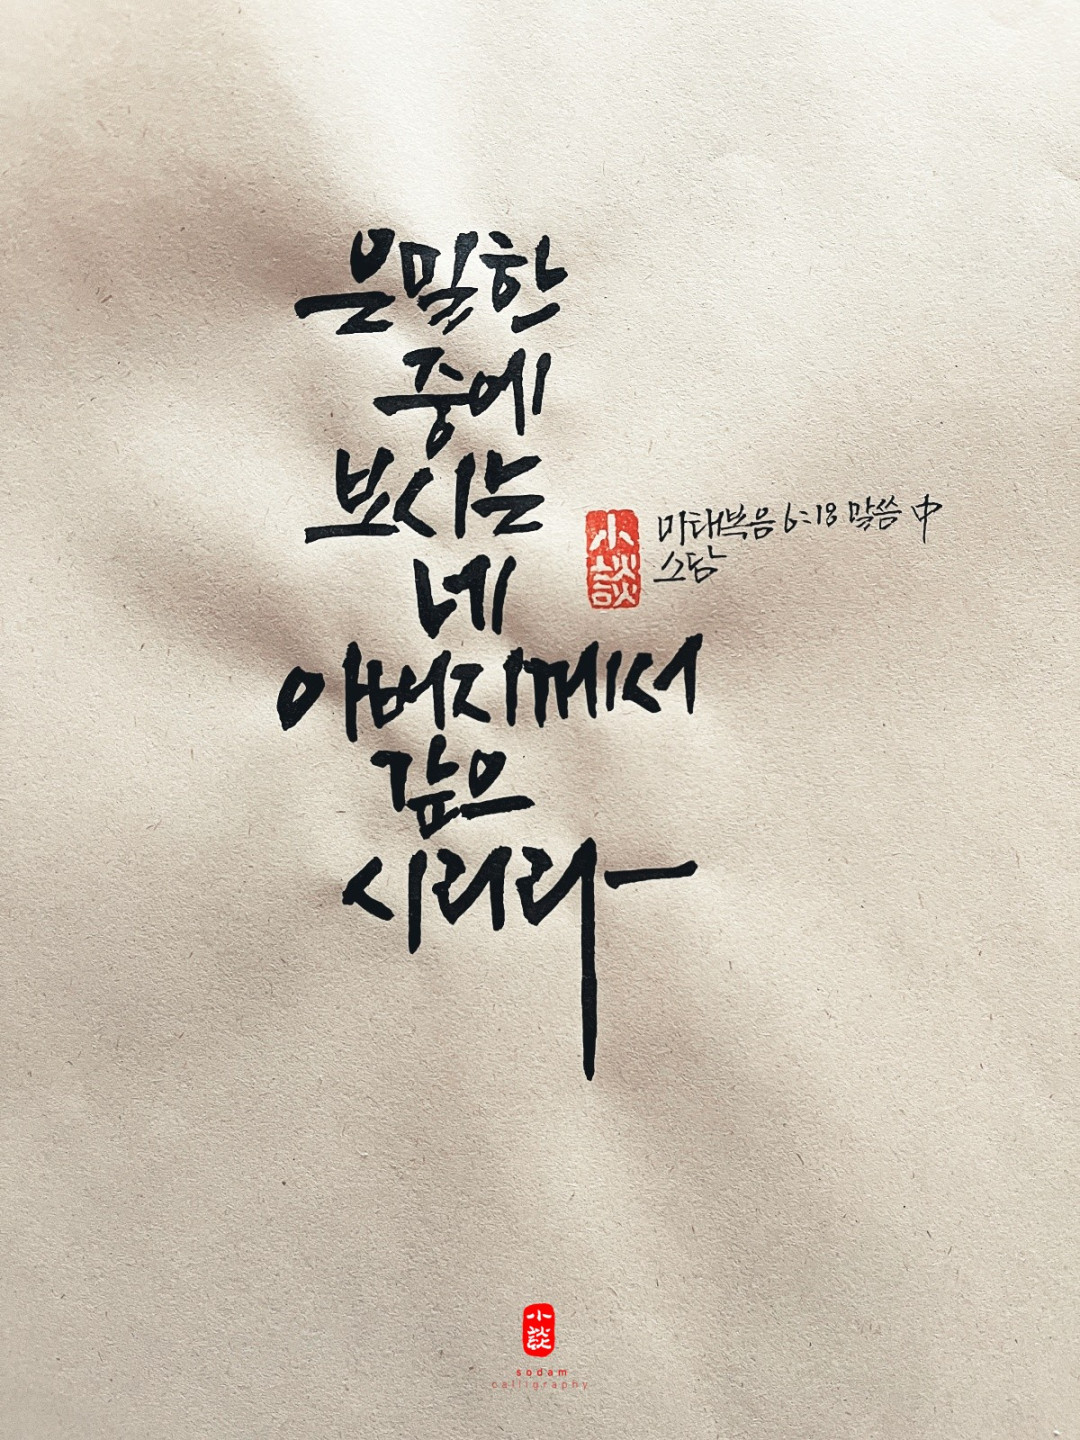 은밀한
중에
보시는
네
아버지께서
갚으
시리라
小談
마태복음 6:18 말씀 中
소담
小談
sodam
calligraphy